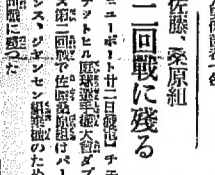 佐藤、桑原組
二回戦に残る
ユーポート廿二日發電】チ
テツトヒル庭球選手權大會ダブ
ス第二回戰で佐藤桑原組はパー
シス、ジヤンセン組棄權のため
回戰に殘つた